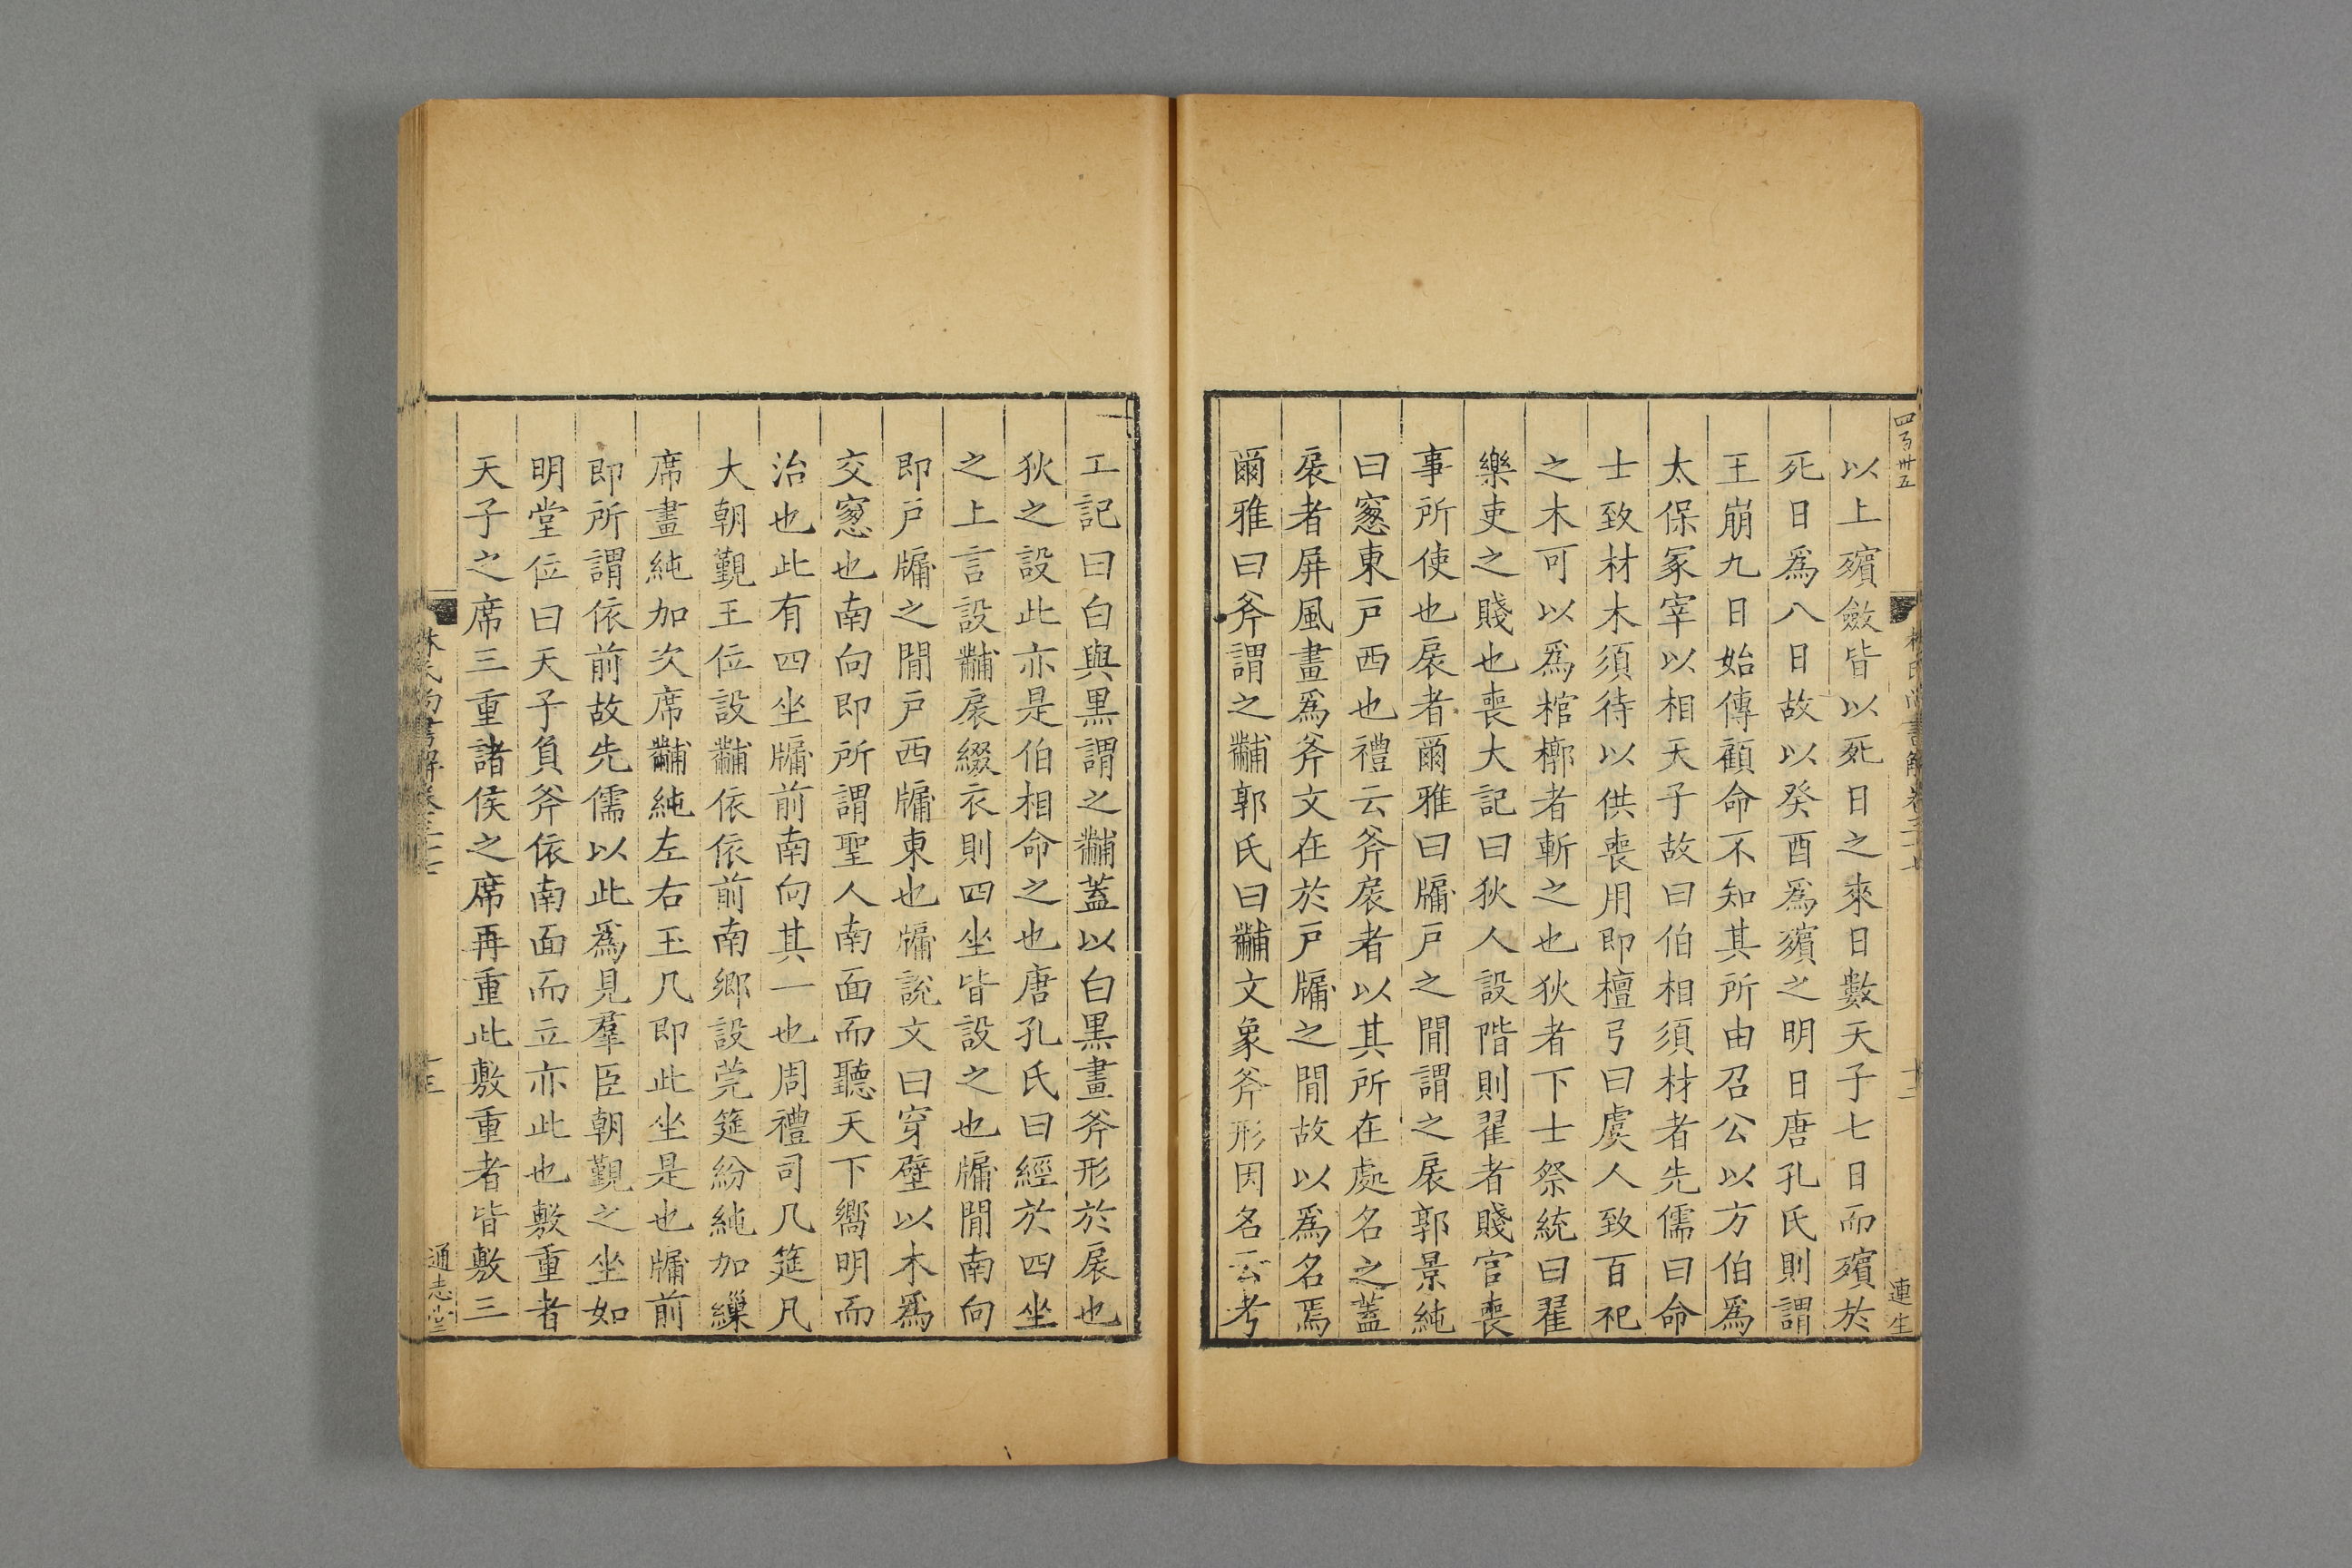 以上殯斂皆以死日之來日數天子七日而殯於
死日爲八日故以癸酉爲殯之明日唐孔氏則謂
王崩九日始傳顧命不知其所由召公以方伯爲
太保冢宰以相天子故曰伯相須材者先儒曰命
士致材木須待以供喪用即檀弓曰虞人致百祀
之木可以爲棺槨者斬之也狄者下士祭統曰翟
樂吏之賤也喪大記曰狄人設階則翟者賤官喪
事所使也扆者爾雅曰牖戶之間謂之扆郭景純
曰窻東戶西也禮云斧扆者以其所在處名之蓋
扆者屏風畫爲斧文在於戶牖之間故以爲名焉
爾雅曰斧謂之黼郭氏曰黼文象斧形因名云考
工記曰白與黒謂之黼蓋以白黒畫斧形於扆也
狄之設此亦是伯相命之也唐孔氏曰經於四坐
之上言設黼扆綴衣則四坐皆設之也牖間南向
即戶牖之間戶西牖東也牖說文曰穿壁以木爲
交窻也南向即所謂聖人南面而聽天下嚮明而
治也此有四坐牖前南向其一也周禮司几筵凡
大朝覲王位設黼依依前南鄉設莞筵紛純加繅
席畫純加次席黼純左右玉几即此坐是也牖前
即所謂依前故先儒以此爲見羣臣朝覲之坐如
明堂位曰天子負斧依南面而立亦此也敷重者
天子之席三重諸侯之席再重此敷重者皆敷三
林氏尚書解卷三十七
十三
通志堂
四百卅五
連生